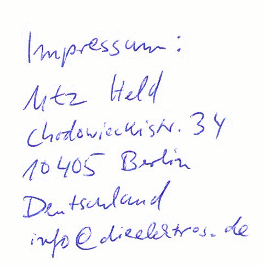 Impressum:
Utz Held
Chodowieckistr. 34
10405 Berlin
Deutschland
info@dieelektros.de